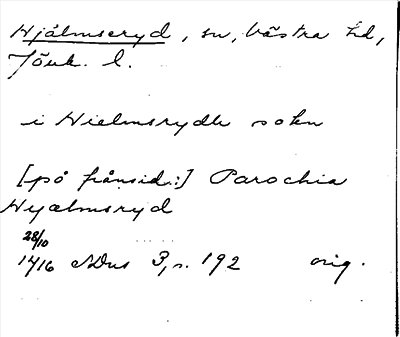 Hjälmseryd, sn, Västra hd,
Jönk. l.
i Hielmsrydh sokn
[på frånsid.:] Parochia
Hyælmsryd
28/10
1416 SDns 3, s. 192 orig.